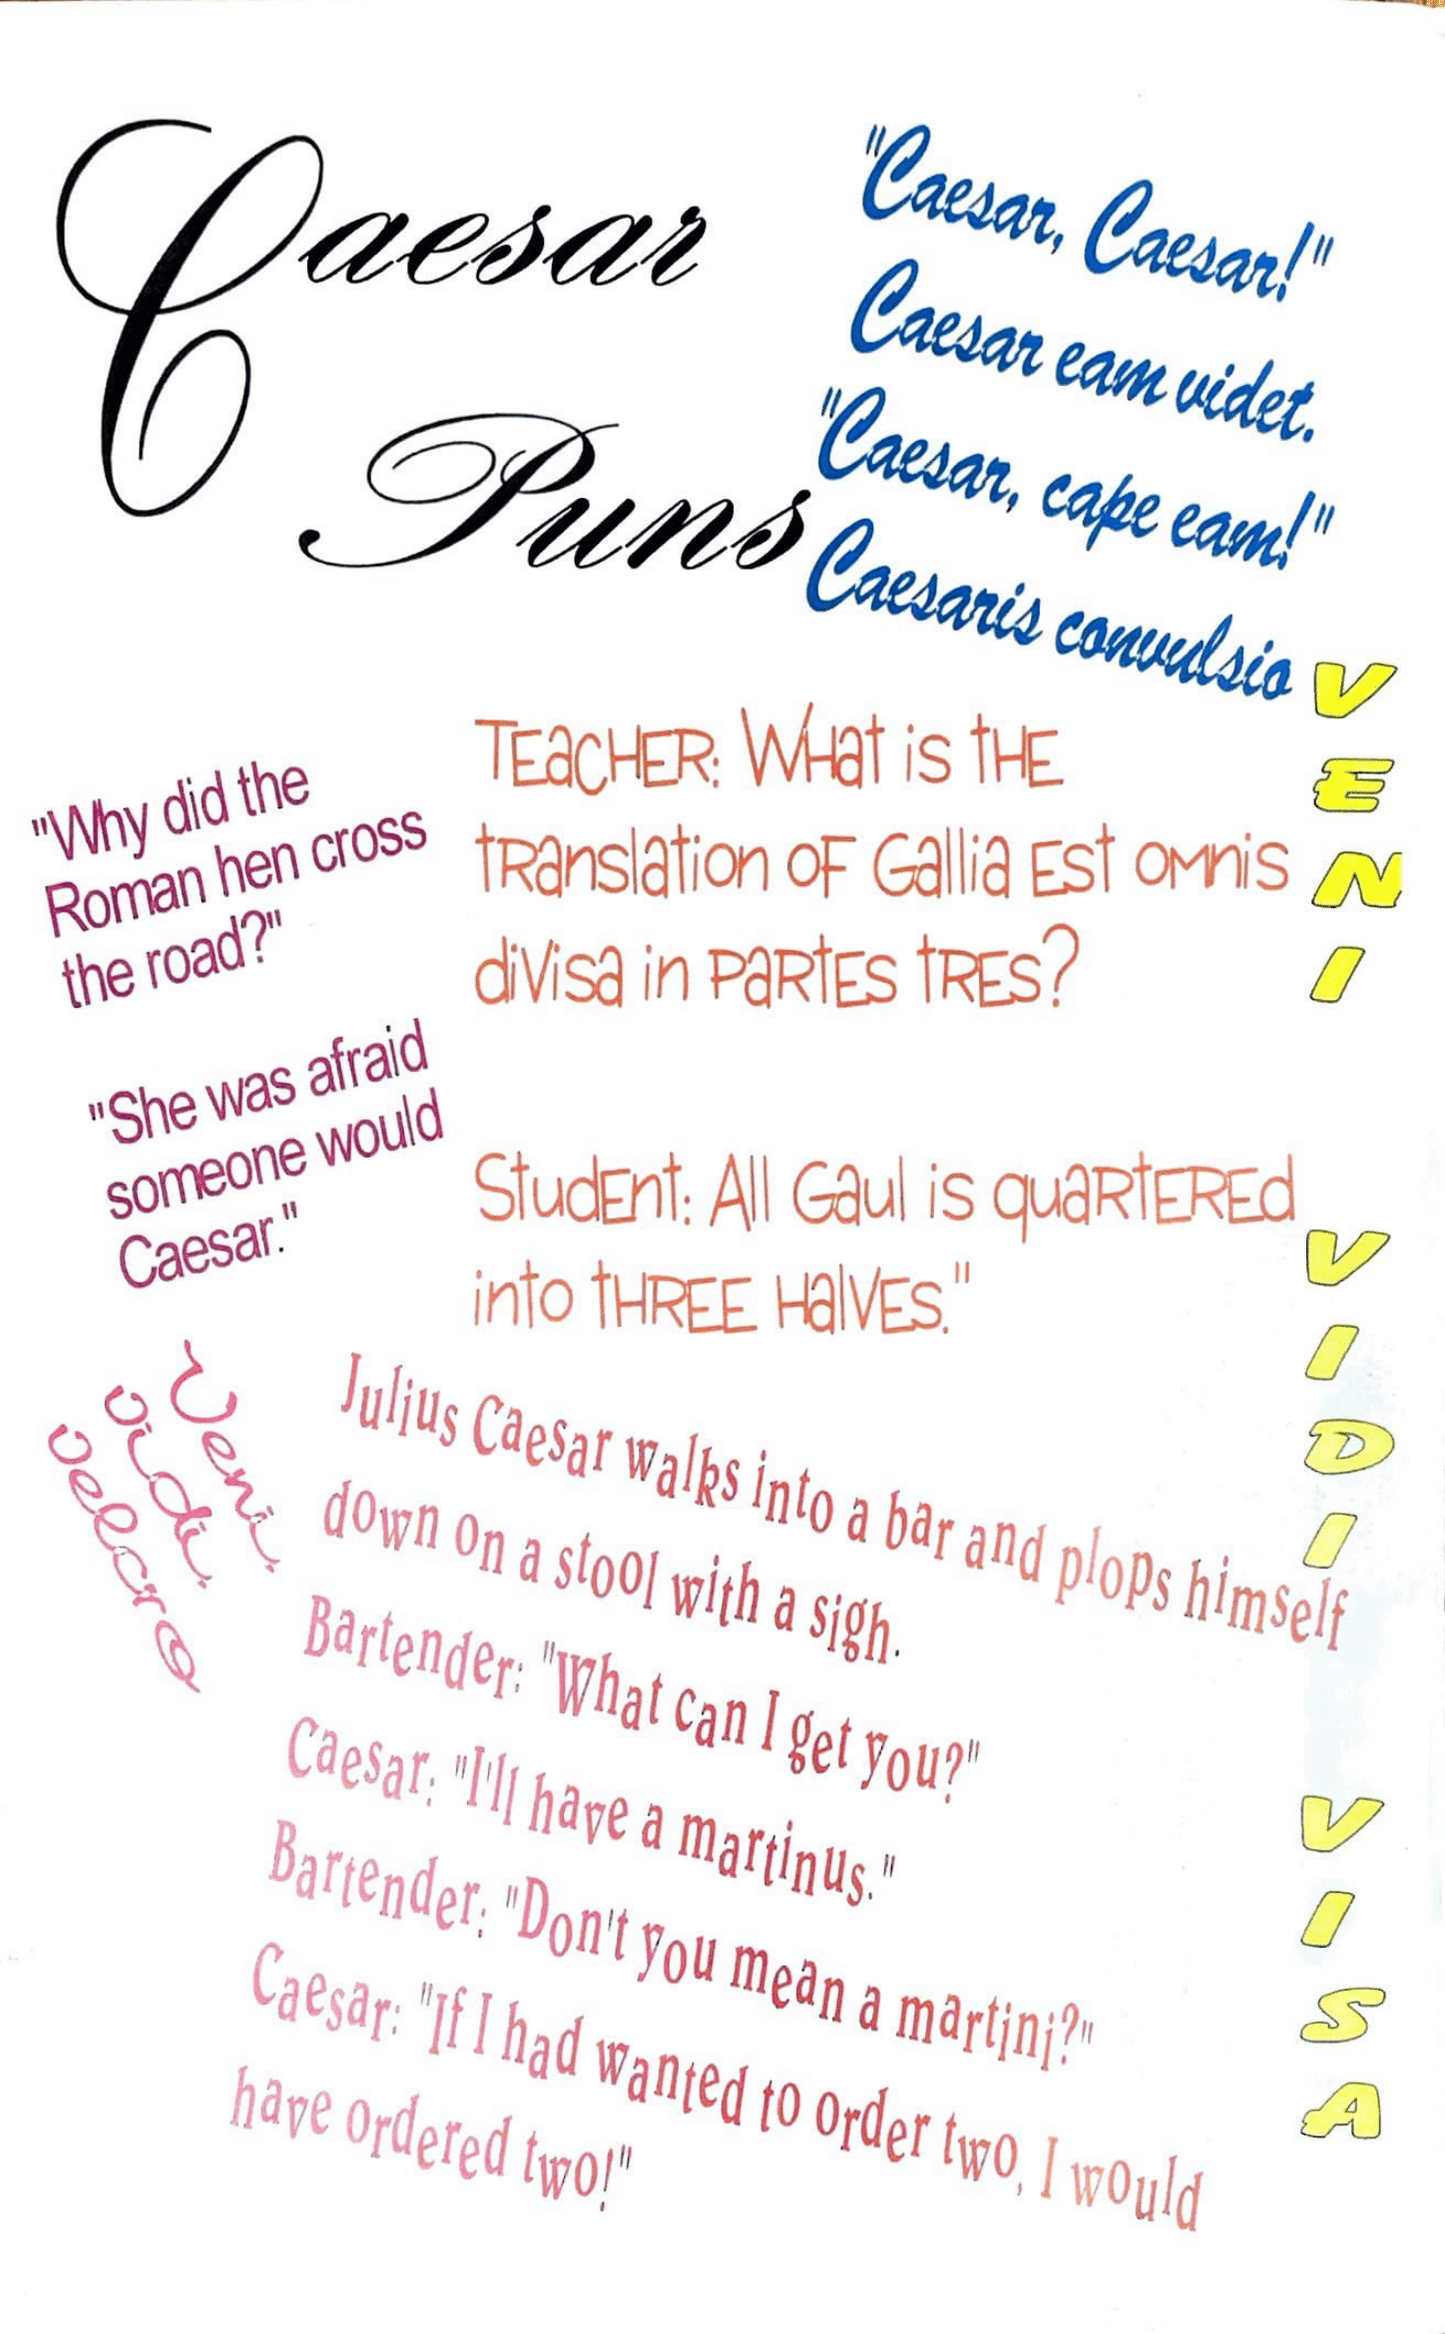 Caesar
Puns
"Caesar, Caesar!"
Caesar eam videt.
"Caesar, cape eam!"
Caesaris convulsio
"Why did the
Roman hen cross
the road?"
"She was afraid
someone would
Caesar."
Teacher: What is the
translation of Gallia est omnis
divisa in partes tres?
Student: All Gaul is quartered
into three halves."
VENI
VIDI
VISA
Veni
vidi
velcro
Julius Caesar walks into a bar and plops himself
down on a stool with a sigh.
Bartender: "What can I get you?"
Caesar: "I'll have a martinus."
Bartender: "Don't you mean a martini?"
Caesar: "If I had wanted to order two, I would
have ordered two!"